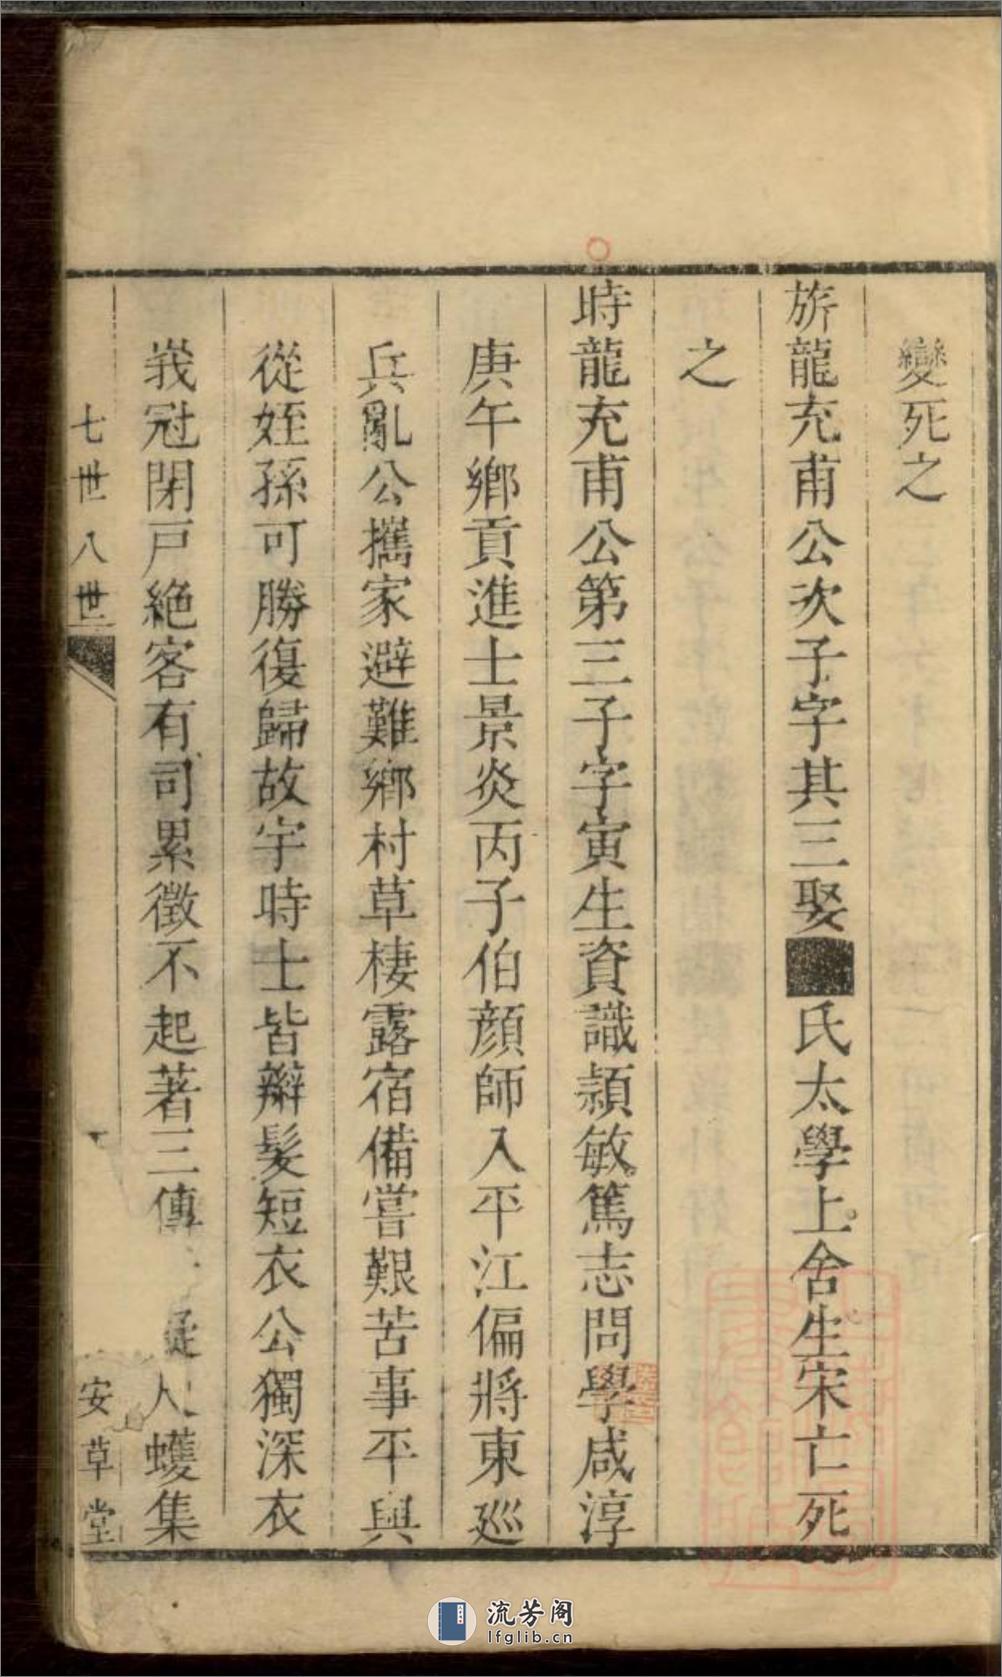 變死之
旂龍充甫公次子字其三娶氏太學上舍生宋亡死
之
時龍充甫公第三子字寅生資識穎敏篤志問學咸淳
庚午鄉貢進士景炎丙子伯顔師入平江偏將東巡
兵亂公攜家避難鄉村草棲露宿備嘗艱苦事平與
從姪孫可勝復歸故宇時士皆辮髮短衣公獨深衣
峩冠閉戸絶客有司累徵不起著三傳 人蠖集
七世八世
安草堂
流芳阁
lfglib.cn